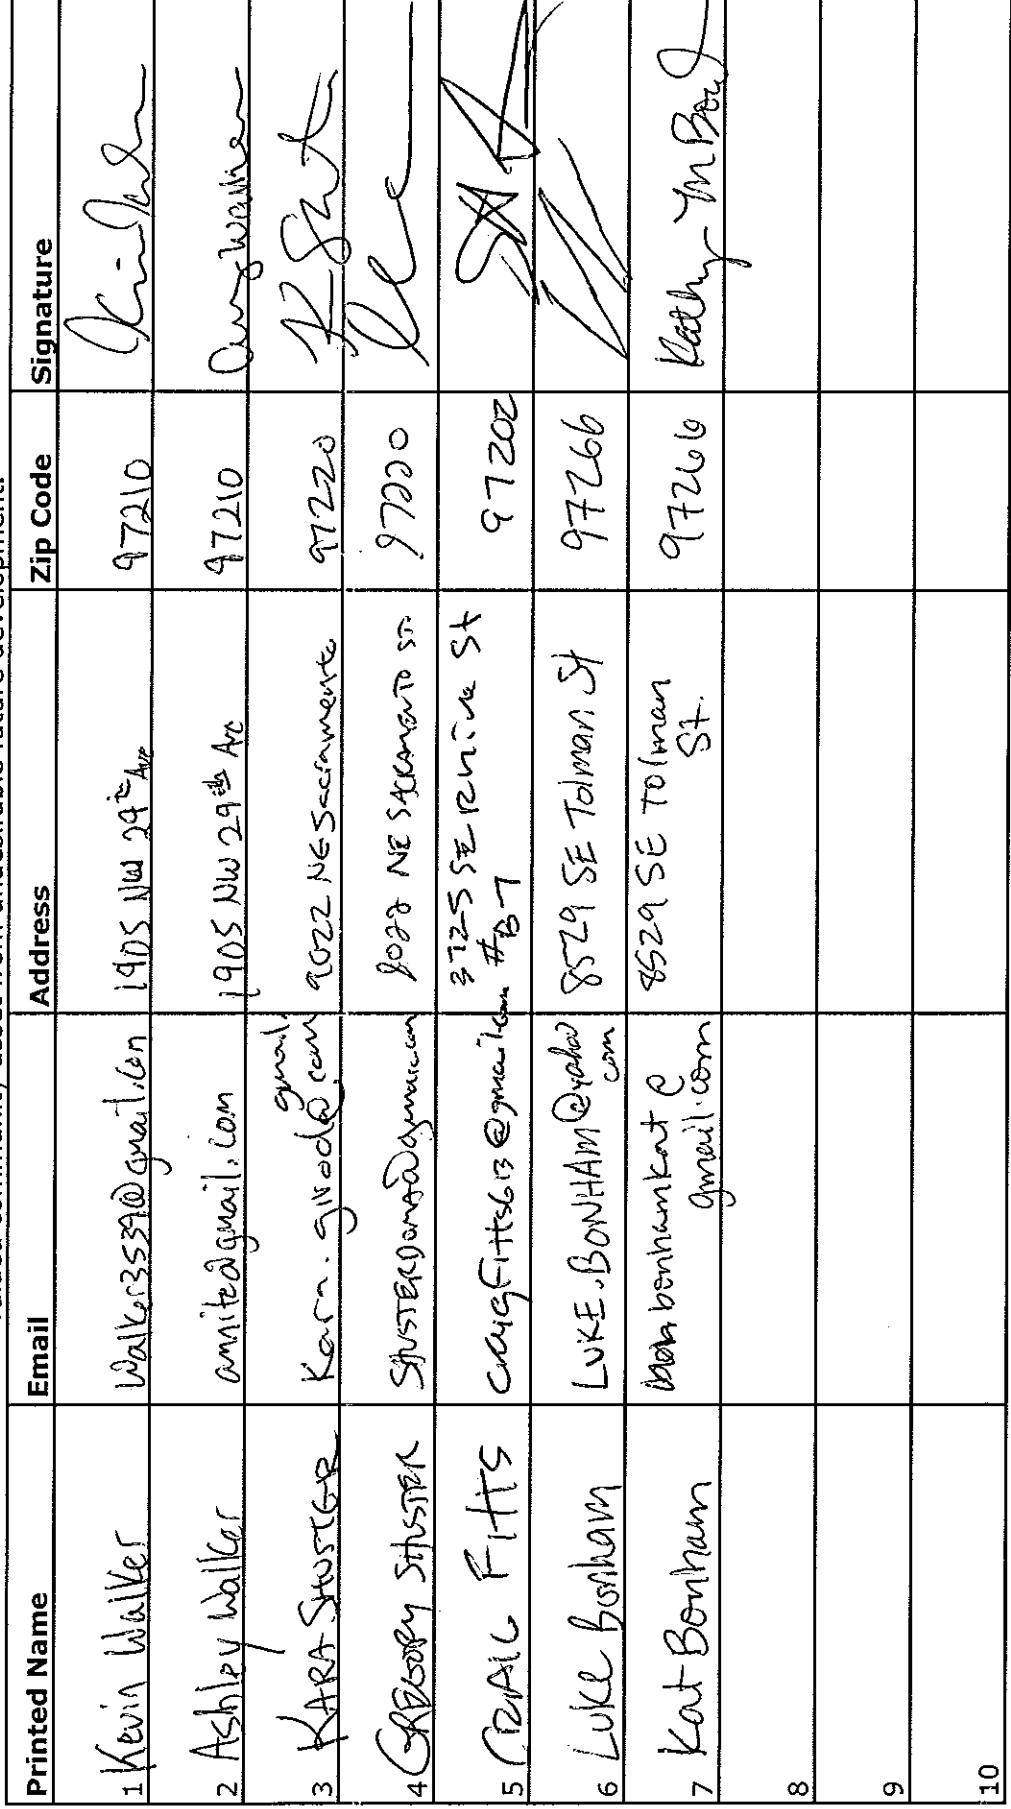 Printed Name Email Address Zip Code Signature
1 Kevin Walker Walker3539@gmail.com 1905 NW 29th Ave 97210
2 Ashley Walker annite@gmail.com 1905 NW 29th Ave 97210
gmail.
3 KARA SHUSTER Kara.givod@com 9022 NE Sacramento 97220
4 GREGORY SHUSTER SHUSTERDOMA@gmail.com 9022 NE SACRAMENTO ST. 97220
3725 SE Rhine St
5 CRAIG Fitts craigFitts613@gmail.com #B-7 97202
6 Luke Bonham LUKE.BONHAM@yahoo 8529 SE Tolman St 97266
com
7 Kat Bonham bonhamkat@ 8529 SE Tolman 97266 Kathy M Bon
gmail.com St.
8
9
10